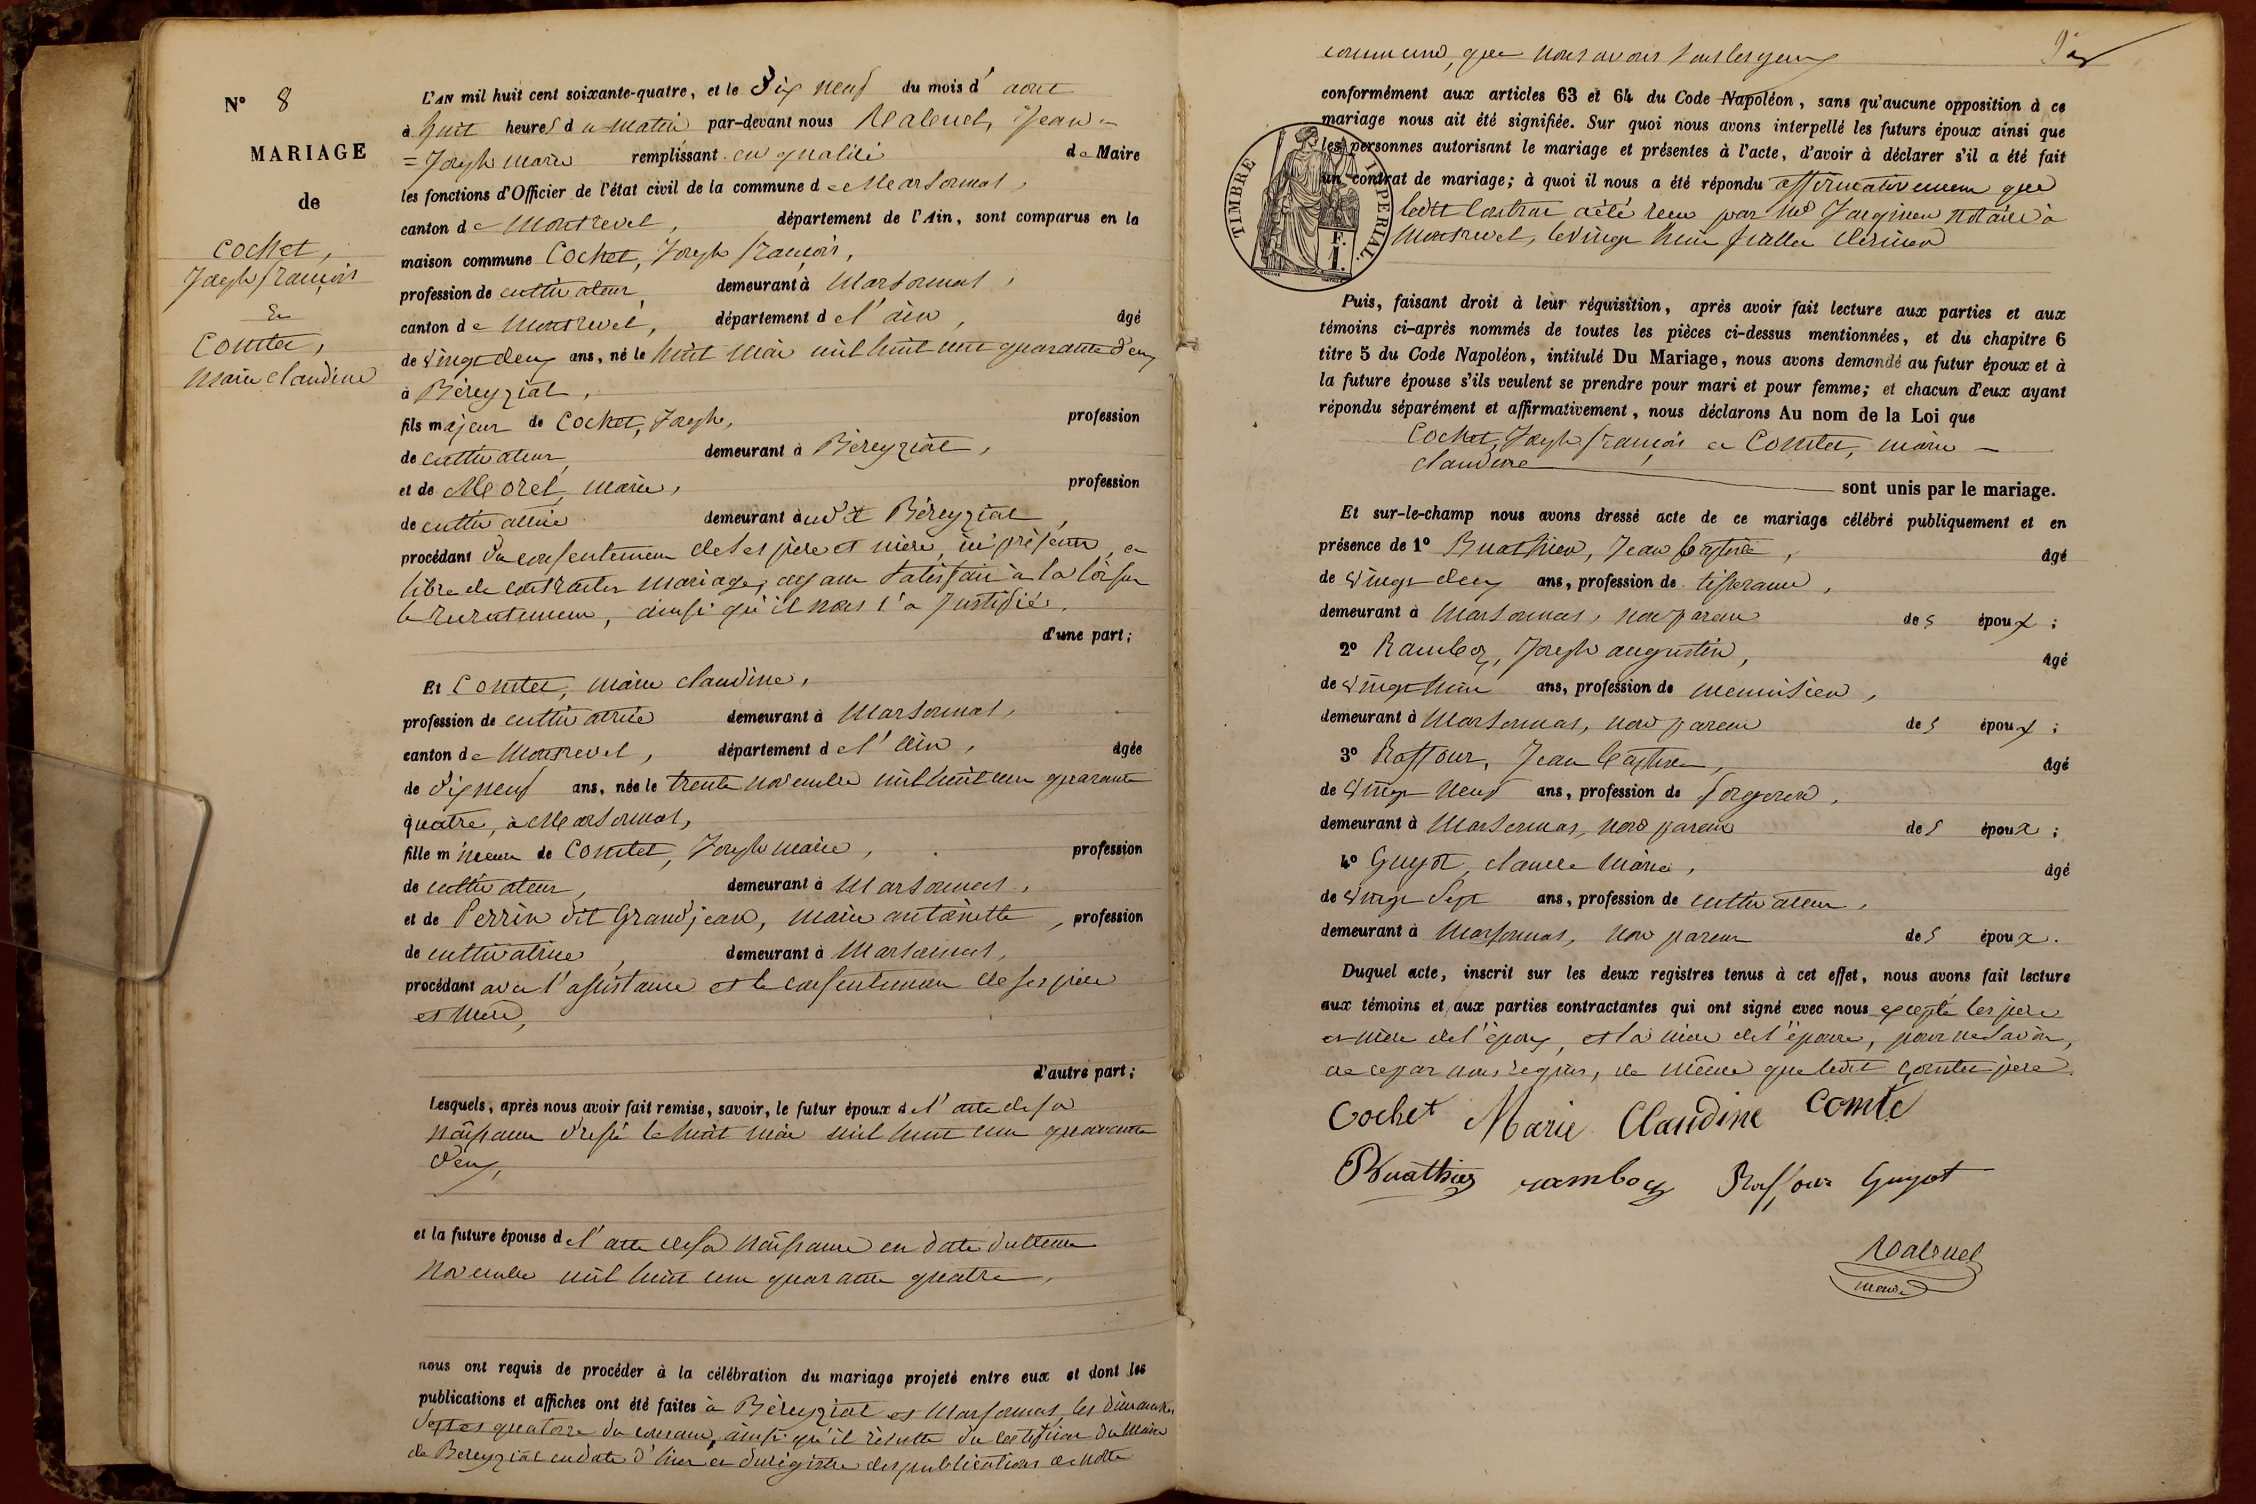 N° 8
MARIAGE
de
Cochet,
Joseph françois
Et
Comtet,
Marie Claudine
L'AN mil huit cent soixante-quatre, et le Dix neuf du mois d'août
à huit heures du matin par-devant nous Jean-
=Joseph Marie remplissant en qualité de Maire
les fonctions d'Officier de l'état civil de la commune de Marsonnas,
canton de Montrevel, département de l'Ain, sont comparus en la
maison commune Cochet, Joseph françois,
profession de cultivateur, demeurant à Marsonnas,
canton de Montrevel, département de l'ain, âgé
de vingt deux ans, né le huit mai mil huit cent quarante deux
à Béreyziat,
fils majeur de Cochet, Joseph, profession
de cultivateur, demeurant à Béreyziat,
et de Morel, marie, profession
de cultivatrice demeurant audit Béreyziat,
procédant du consentement de ses père et mère, ici présents, et
libre de contracter mariage, ayant satisfait à la loi sur
le recrutement, ainsi qu'il nous l'a justifié.
d'une part;
Et Comtet, marie claudine,
profession de cultivatrice demeurant à Marsonnas,
canton de Montrevel, département de l'Ain, âgée
de dix neuf ans, née le trente novembre mil huit cent quarante
quatre, à Marsonnas,
fille mineure de Comtet, Joseph marie, profession
de cultivateur, demeurant à Marsonnas,
et de Perrin dit Grandjean, marie antoinette, profession
de cultivatrice, demeurant à Marsonnas,
procédant avec l'assistance et le consentement de ses père
et mère,
d'autre part;
Lesquels, après nous avoir fait remise, savoir, le futur époux de l'acte de sa
naissance dressé le huit mai mil huit cent quarante
deux,
et la future épouse de l'acte de sa naissance en date du trente
novembre mil huit cent quarante quatre,
nous ont requis de procéder à la célébration du mariage projeté entre eux et dont les
publications et affiches ont été faites à Béreyziat et Marsonnas, les dimanches
sept et quatorze du courant, ainsi qu'il résulte du certificat du Maire
de Bereyziat en date d'hier et du registre des publications de notre
commune, que nous avons sous les yeux
conformément aux articles 63 et 64 du Code Napoléon, sans qu'aucune opposition à ce
mariage nous ait été signifiée. Sur quoi nous avons interpellé les futurs époux ainsi que
les personnes autorisant le mariage et présentes à l'acte, d'avoir à déclarer s'il a été fait
un contrat de mariage; à quoi il nous a été répondu affirmativement que
ledit Contrat a été reçu par Me notaire à
Montrevel, le vingt huit juillet dernier
TIMBRE IMPERIAL.
F.
1.
Puis, faisant droit à leur réquisition, après avoir fait lecture aux parties et aux
témoins ci-après nommés de toutes les pièces ci-dessus mentionnées, et du chapitre 6
titre 5 du Code Napoléon, intitulé Du Mariage, nous avons demandé au futur époux et à
la future épouse s'ils veulent se prendre pour mari et pour femme; et chacun d'eux ayant
répondu séparément et affirmativement, nous déclarons Au nom de la Loi que
Cochet, Joseph françois et Comtet, marie
claudine
sont unis par le mariage.
Et sur-le-champ nous avons dressé acte de ce mariage célébré publiquement et en
présence de 1° Buathier, Jean baptiste, âgé
de vingt deux ans, profession de tisserand,
demeurant à Marsonnas, non parent des époux;
2° Ramboz, Joseph augustin, âgé
de vingt huit ans, profession de menuisier,
demeurant à Marsonnas, non parent des époux;
3° Roffour, Jean baptiste, âgé
de vingt neuf ans, profession de forgeron,
demeurant à Marsonnas, non parent des époux;
4° Guyot, claude Marie, âgé
de vingt sept ans, profession de cultivateur,
demeurant à Marsonnas, non parent des époux.
Duquel acte, inscrit sur les deux registres tenus à cet effet, nous avons fait lecture
aux témoins et aux parties contractantes qui ont signé avec nous excepté les père
et mère de l'époux, et la mère de l'épouse, pour ne savoir,
de ce par nous requis, de même que ledit Comtet père.
Cochet Marie Claudine Comte
Buathier ramboz Roffour Guyot
maire